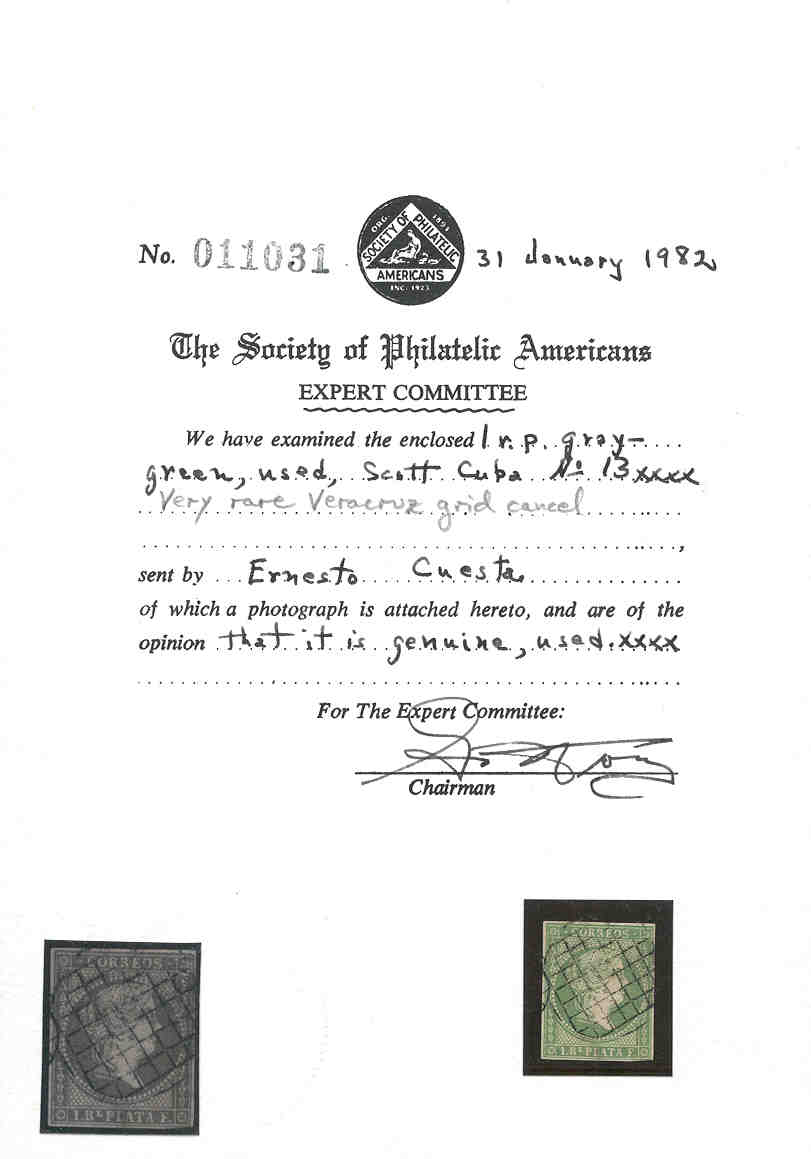 No. 011031
ORG. 1894
SOCIETY OF PHILATELIC
AMERICANS
INC. 1923
31 January 1982
The Society of Philatelic Americans
EXPERT COMMITTEE
We have examined the enclosed 1 r. p. gray-
green, used, Scott Cuba No 13 xxxx
Very rare Veracruz grid cancel
sent by Ernesto Cuesta
of which a photograph is attached hereto, and are of the
opinion that it is genuine, used. xxxx
For The Expert Committee:
Chairman
CORREOS
1 Rl PLATA F.
CORREOS
1 Rl PLATA F.